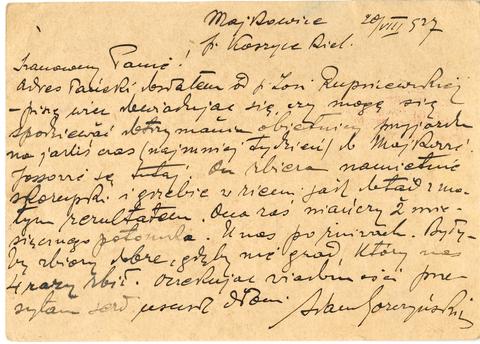 Majkowice 20/VIII 927
p. Koszyce Kiel.
Szanowny Panie!
Adres Pański dostałem od p. Zosi Rupniewskiej
- piszę więc dowiadując się, czy mogę się
spodziewać dotrzymania obietnicy przyjazdu
na jakiś czas (najmniej tydzień) do Majkowic
się tutaj. On zbiera namiętnie
skorupki i grzebie w ziemi jak dotąd z ma-
łym rezultatem. Ona zaś niańczy 2 mie-
sięcznego potomka. U nas po żniwach. Były-
by zbiory dobre, gdyby nie grad, który nas
4 razy zbił. Oczekując wiadomości prze-
syłam serd. uścisk dłoni Adam Gorczyński